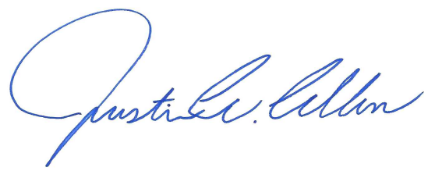 Justin W. Allen